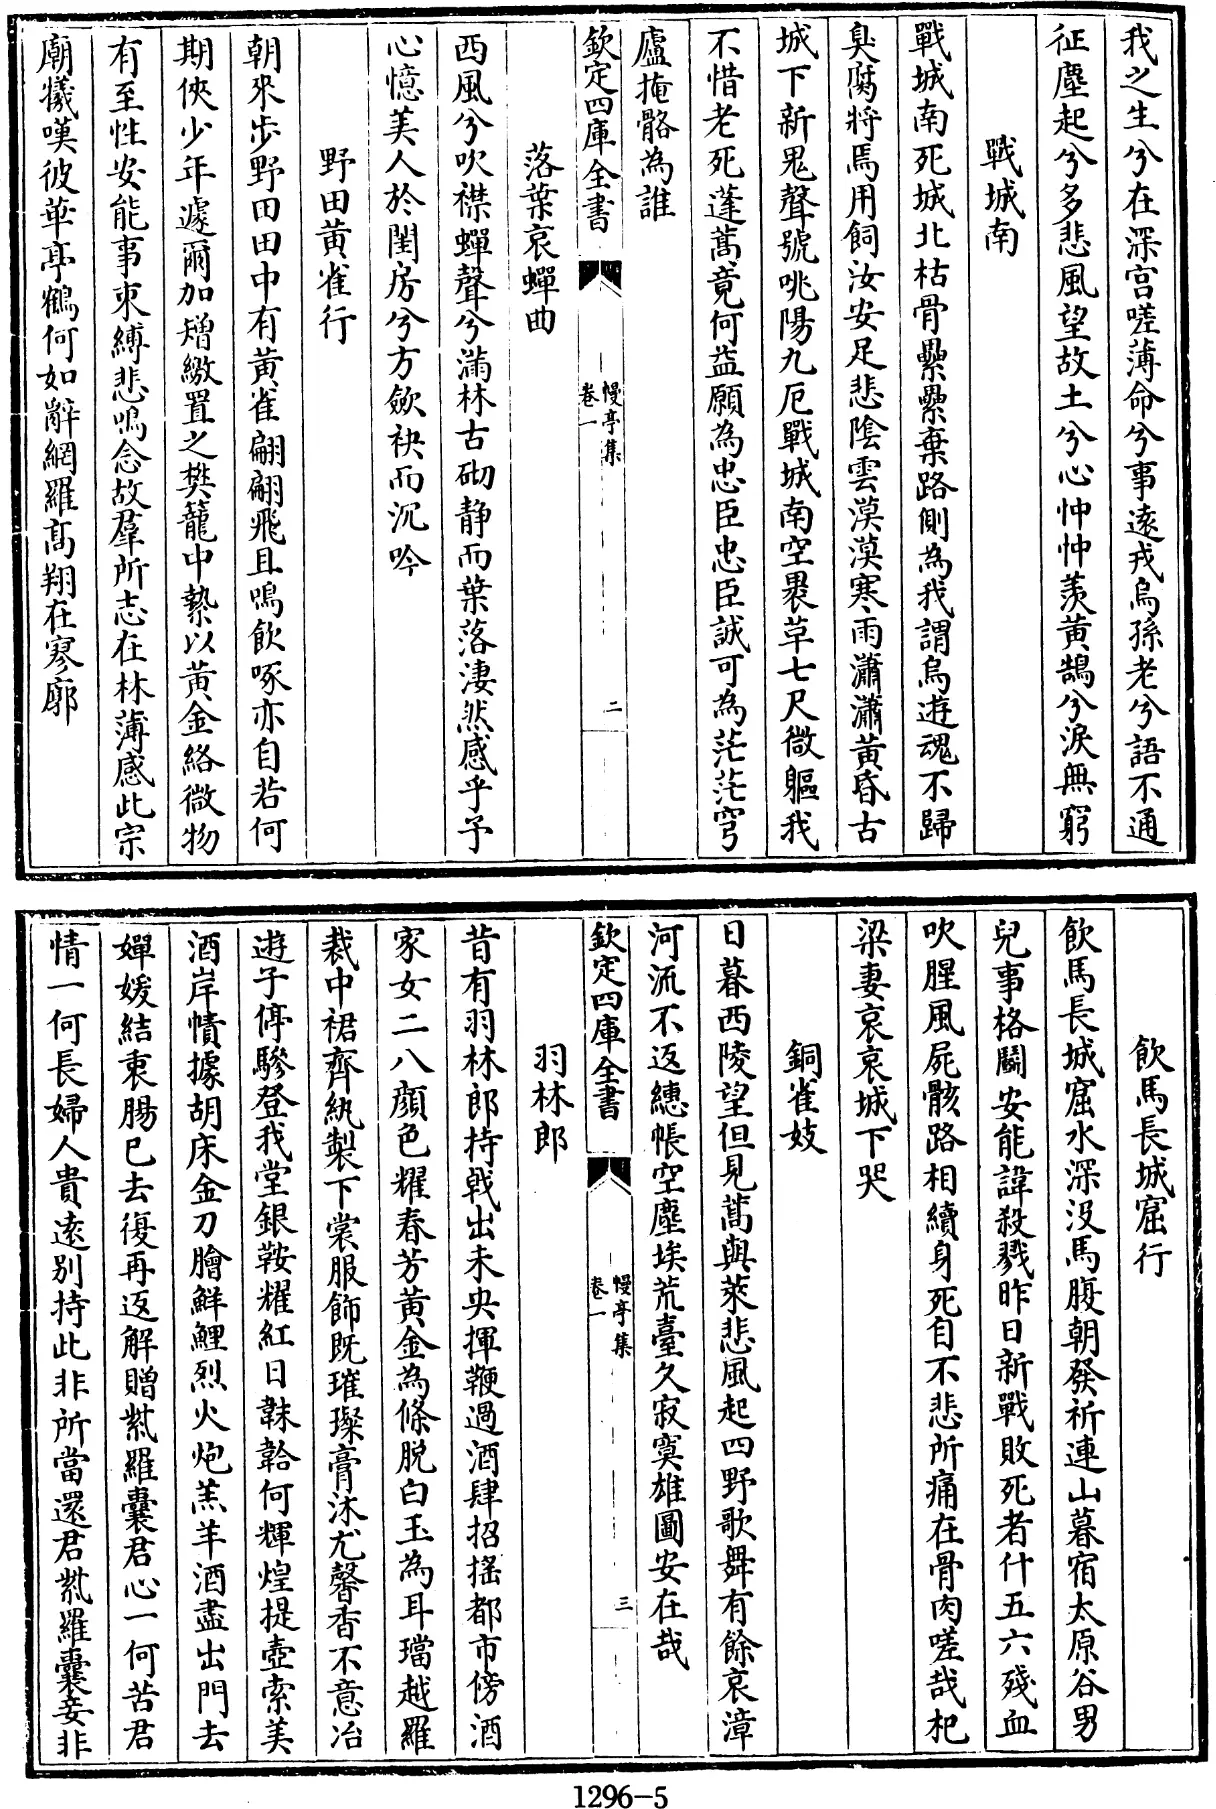 我之生兮在深宫嗟薄命兮事逺戎烏孫老兮語不通
征塵起兮多悲風望故土兮心忡忡羡黄鵠兮淚無窮
戰城南
戰城南死城北枯骨纍纍棄路側為我謂烏遊魂不歸
臭腐將焉用飼汝安足悲隂雲漠漠寒雨瀟瀟黄昏古
城下新鬼聲號咷陽九厄戰城南空裹草七尺微軀我
不惜老死蓬蒿竟何益願為忠臣忠臣誠可為茫茫穹
廬掩骼為誰
欽定四庫全書
幔亭集
卷一
二
落葉哀蟬曲
西風兮吹襟蟬聲兮滿林古砌静而葉落淒然感乎予
心憶美人於閨房兮方斂袂而沉吟
野田黄雀行
朝來步野田田中有黄雀翩翩飛且鳴飲啄亦自若何
期俠少年遽爾加矰繳置之樊籠中縶以黄金絡微物
有至性安能事束縛悲鳴念故羣所志在林薄感此宗
廟犧嘆彼華亭鶴何如辭網羅髙翔在寥廓
飲馬長城窟行
飲馬長城窟水深没馬腹朝發祈連山暮宿太原谷男
兒事格鬭安能諱殺戮昨日新戰敗死者什五六殘血
吹腥風屍骸路相續身死自不悲所痛在骨肉嗟哉杞
梁妻哀哀城下哭
銅雀妓
日暮西陵望但見蒿與萊悲風起四野歌舞有餘哀漳
河流不返繐帳空塵埃荒臺久寂寞雄圖安在哉
欽定四庫全書
幔亭集
卷一
三
羽林郎
昔有羽林郎持戟出未央揮鞭過酒肆招揺都市傍酒
家女二八顔色耀春芳黄金為條脱白玉為耳璫越羅
裁中裙齊紈製下裳服飾既璀璨膏沐尤馨香不意冶
遊子停驂登我堂銀鞍耀紅日韎韐何輝煌提壺索美
酒岸幘據胡床金刀膾鮮鯉烈火炮羔羊酒盡出門去
嬋媛結衷腸已去復再返解贈紫羅囊君心一何苦君
情一何長婦人貴逺别持此非所當還君紫羅囊妾非
1296-5